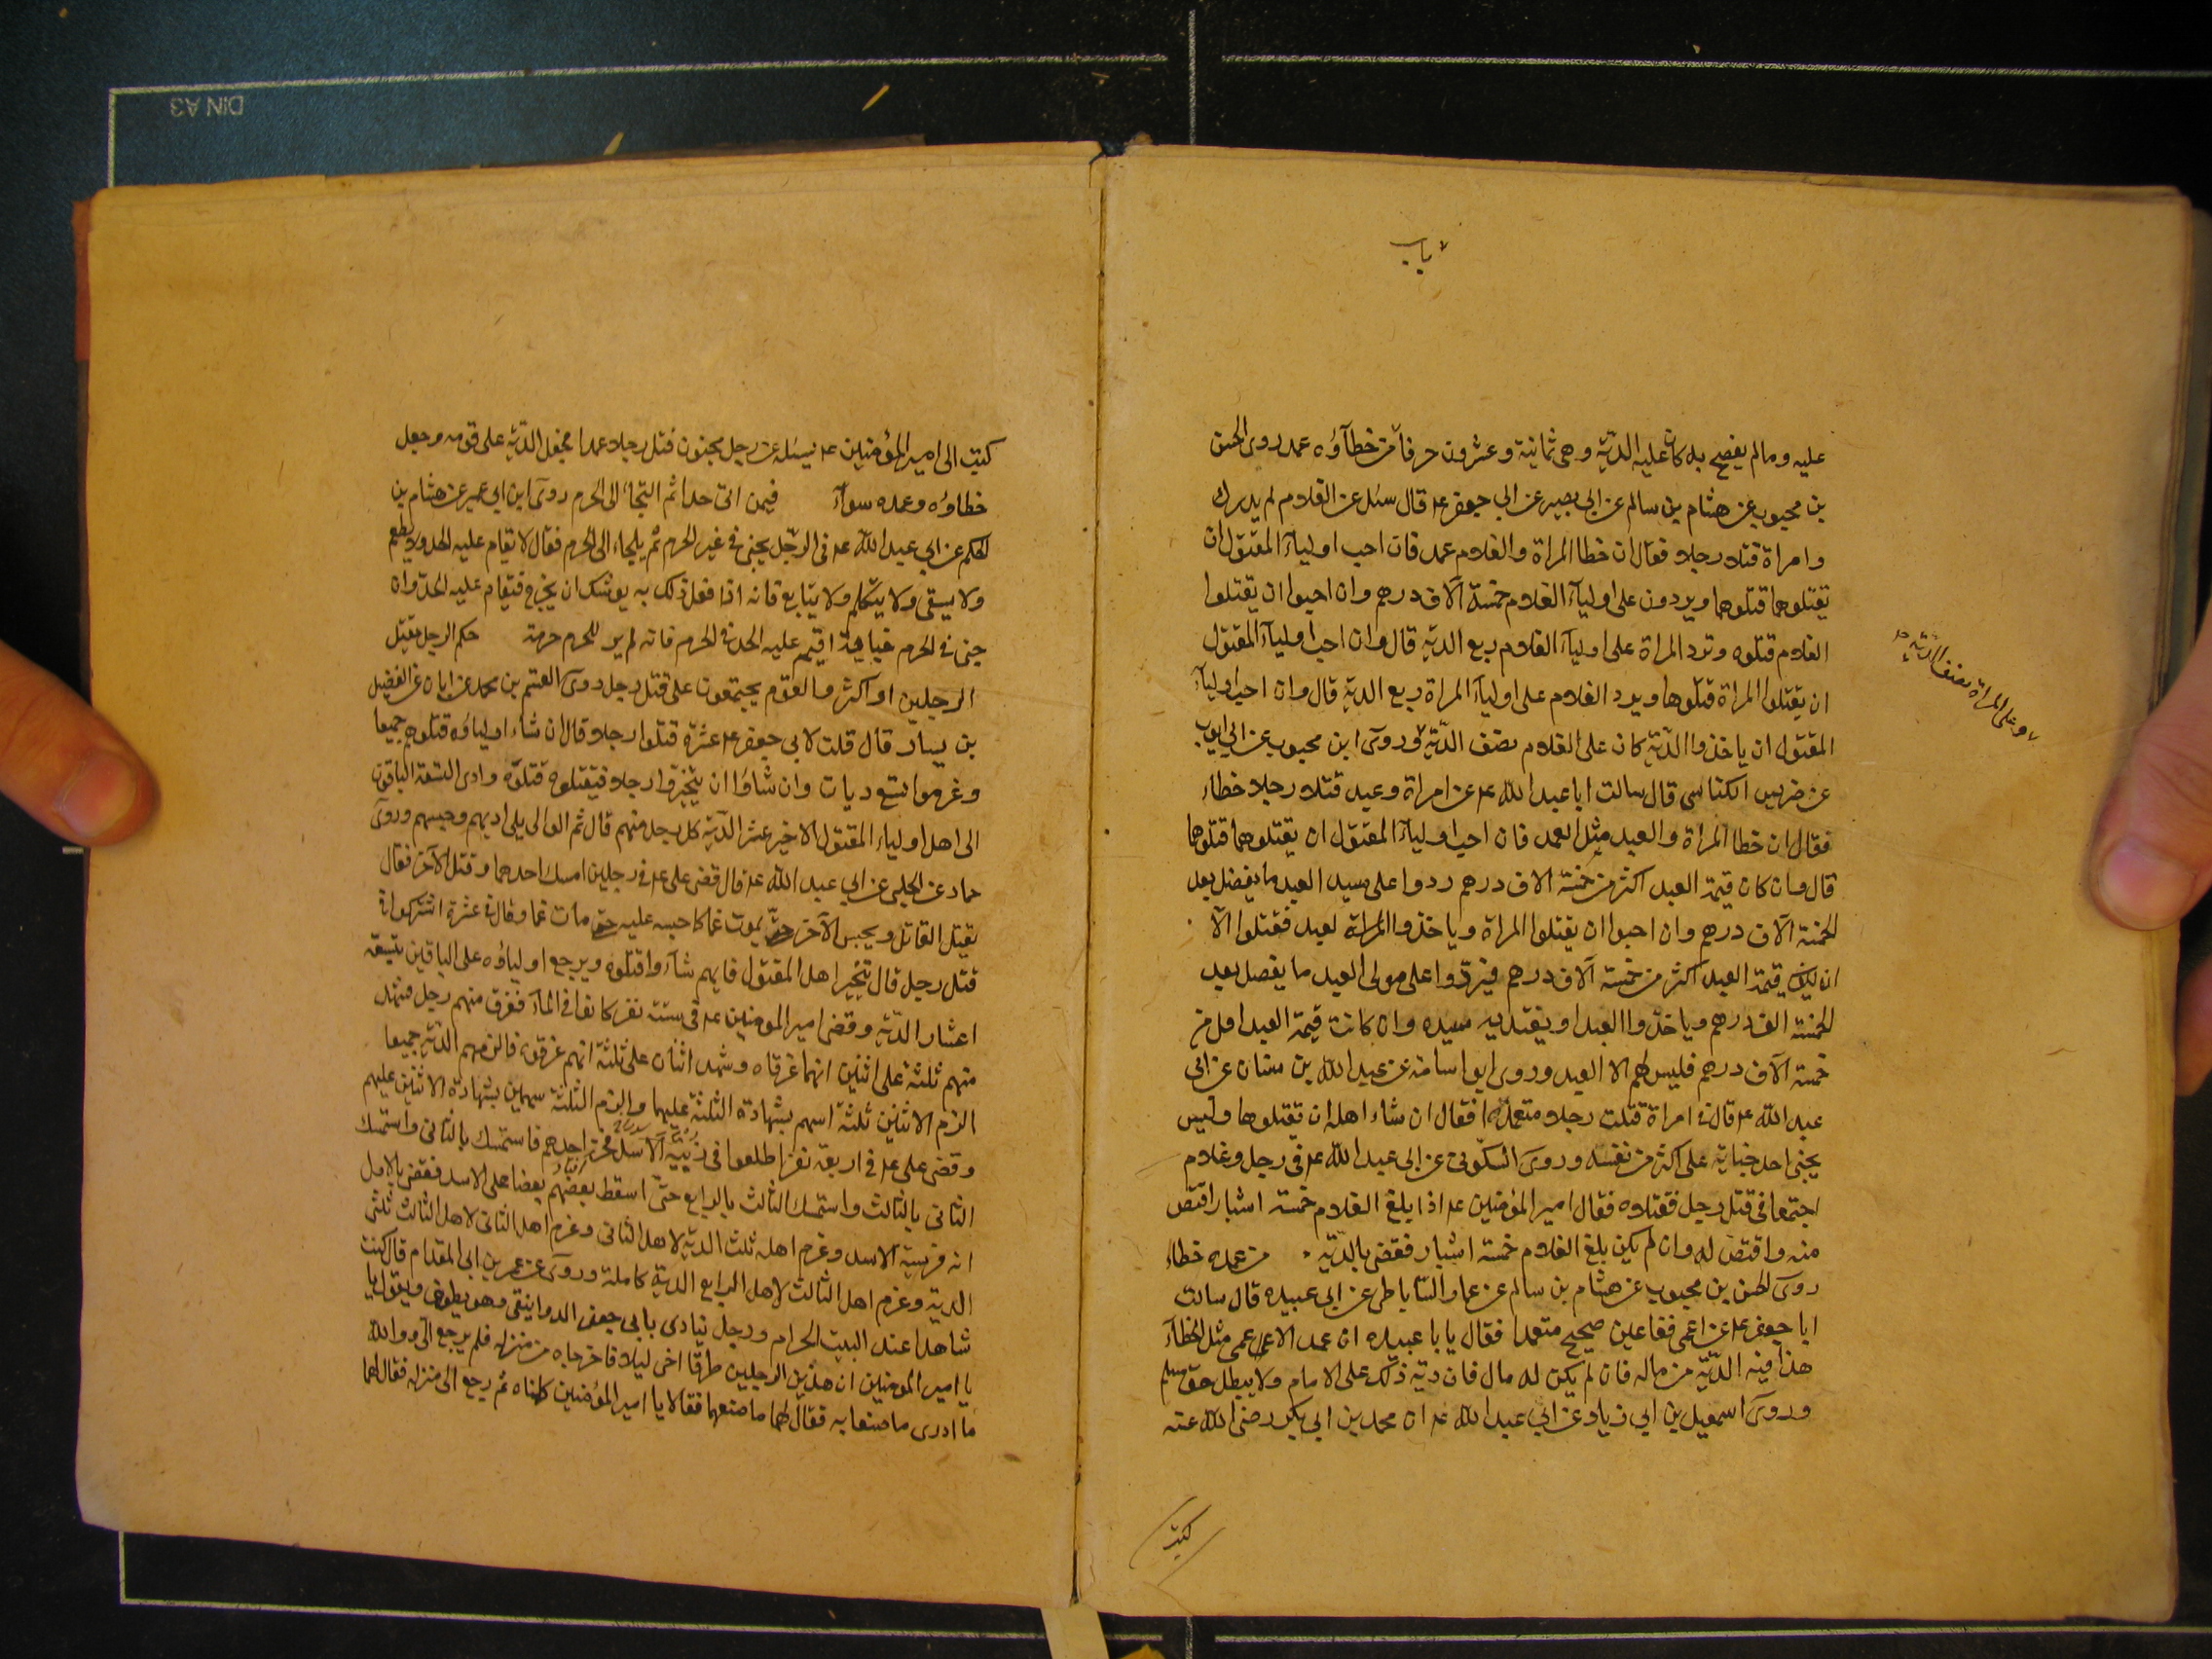 ٧ باب
عليه وما لم يفصح به كان عليه الدّيّة وهى ثمانية وعشرون حرفا من خطآؤه عمد روى الحسن
بن محبوب عن هشام بن سالم عن ابى بصير عن ابى جعفر ع قال سئل عن الغلام لم يدرك
وامراة قتلا رجلا فقال ان خطا المراة والغلام عمد فان احب اوليآء المقتول ان
يقتلوهما قتلوهما ويردون على اوليآء الغلام خمسة آلاف درهم وان احبوا ان يقتلوا
الغلام قتلوه وترد المراة على اوليآء الغلام ربع الدية قال وان احب اوليآء المقتول
ان يقتلوا المراة قتلوها ويرد الغلام على اوليآء المراة ربع الدية قال وان احب اوليآء
المقتول ان ياخذوا الدّية كان على الغلام نصف الدّية ٧ وروى ابن محبوب عن ابى ايوب
٧ وعلى المراة نصف الدّية صح
عن ضريس الكناسى قال سالت ابا عبد اللّه ع عن امراة وعبد قتلا رجلا خطاء
فقال ان خطا المراة والعبد مثل العمد فان احب اوليآء المقتول ان يقتلوهما قتلوهما
قال وان كان قيمة العبد اكثر من خمسة الاف درهم ردوا على سيد العبد ما يفضل بعد
الخمسة آلاف درهم وان احبوا ان يقتلوا المراة وياخذوا المراة لعبد فقتلوا الّا
ان يكون قيمة العبد اكثر من خمسة آلاف درهم فيردّوا على مولى العبد ما يفضل بعد
الخمسة الف درهم وياخذوا العبد او يفتديه سيده وان كانت قيمة العبد اقل من
خمسة آلاف درهم فليس لهم الا العبد وروى ابو اسامة عن عبد اللّه بن سنان عن ابى
عبد اللّه ع قال فى امراة قتلت رجلا متعمدة فقال ان شاء اهله ان يقتلوها وليس
يجنى احد جناية على اكثر من نفسه وروى السكونى عن ابى عبد اللّه ع فى رجل وغلام
اجتمعا فى قتل رجل فقتلاه فقال امير المؤمنين ع اذا بلغ الغلام خمسة اشبار اقتص
منه واقتص له وان لم يكن بلغ الغلام خمسة اشبار فقضى بالدّية من عمده خطاء
روى الحسن بن محبوب عن هشام بن سالم عن عمار السّاباطى عن ابى عبيده قال سالت
ابا جعفر ع عن اعمى فقا عين صحيح متعمدا فقال يا با عبيده ان عمد الاعمى مثل الخطآء
هذا فيه الدّية من ماله فان لم يكن له مال فان دية ذلك على الامام ولا يبطل حق مسلم
وروى اسمعيل بن ابى زياد عن ابى عبد اللّه ع ان محمد بن ابى بكر رضى اللّه عنه
كتب
كتب الى امير المؤمنين ع يسئله عن رجل مجنون قتل رجلا عمدا فجعل الدّية على قومه وجعل
خطاؤه وعمده سوآء فيمن اتى حدا ثم التجأ الى الحرم روى ابن ابى عمير عن هشام بن
الحكم عن ابى عبد اللّه ع فى الرّجل يجنى فى غير الحرم ثم يلجاء الى الحرم فقال لا يقام عليه الحد ولا يطعم
ولا يسقى ولا يتكلم ولا يتبايع فانه اذا فعل ذلك به يوشك ان يخرج فيقام عليه الحدّ وان
جنى فى الحرم جناية اقيم عليه الحد فى الحرم فانه لم ير للحرم حرمة حكم الرجل يقتل
الرجلين او اكثر والقوم يجتمعون على قتل رجل روى القسم بن محمد عن ابان عن الفضيل
بن يسار قال قلت لابى جعفر ع عشرة قتلوا رجلا قال ان شاء اولياؤه قتلوهم جميعا
وغرموا تسع ديات وان شاؤا ان يتخيروا رجلا فيقتلوه قتلوه وادى التسعة الباقون
الى اهل اولياء المقتول الاخير عشر الدّية كل رجل منهم قال ثم الوالى يلى ادبهم وحبسهم وروى
حماد عن الحلبى عن ابى عبد اللّه ع قال قضى على ع فى رجلين امسك احدهما وقتل الآخر فقال
يقتل القاتل ويحبس الآخر حتّى يموت غما كما حبسه عليه حتى مات غما وقال فى عشرة اشتركوا فى
قتل رجل قال تتخير اهل المقتول فايهم شآءوا قتلوه ويرجع اولياؤه على الباقين بتسعة
اعشار الدّية وقضى امير المومنين ع فى ستة نفر كانوا فى المآء فغرق منهم رجل فشهد
منهم ثلثة على اثنين انهما غرقاه وشهد اثنان على ثلثة انهم غرقوه فالزمهم الدّية جميعا
الزم الاثنين ثلثة اسهم بشهادة الثلثة عليهما والزم الثلثة سهمين بشهادة الاثنين عليهم
وقضى على ع فى اربعة نفر اطلعوا فى زبية الاسد فخر احدهم فاستمسك بالثانى واستمسك
الثانى بالثالث واستمسك الثالث بالرابع حتّى اسقط بعضهم بعضا على الاسد فقضى بالاول
انه فريسة الاسد وغرم اهله ثلث الدية لاهل الثانى وغرم اهل الثانى لاهل الثالث ثلثى
الدية وغرم اهل الثالث لاهل الرابع الدية كاملة وروى عن عمر بن ابى المقدام قال كنت
شاهدا عند البيت الحرام ورجل ينادى بابى جعفر الدوانيقى وهو يطوف ويقول يا
يا امير المومنين ان هذين الرجلين طرقا اخى ليلا فاخرجاه من منزله فلم يرجع الىّ وواللّه
ما ادرى ما صنعا به فقال لهما ما صنعتما فقالا يا امير المؤمنين كلمناه ثم رجع الى منزله فقال لهما